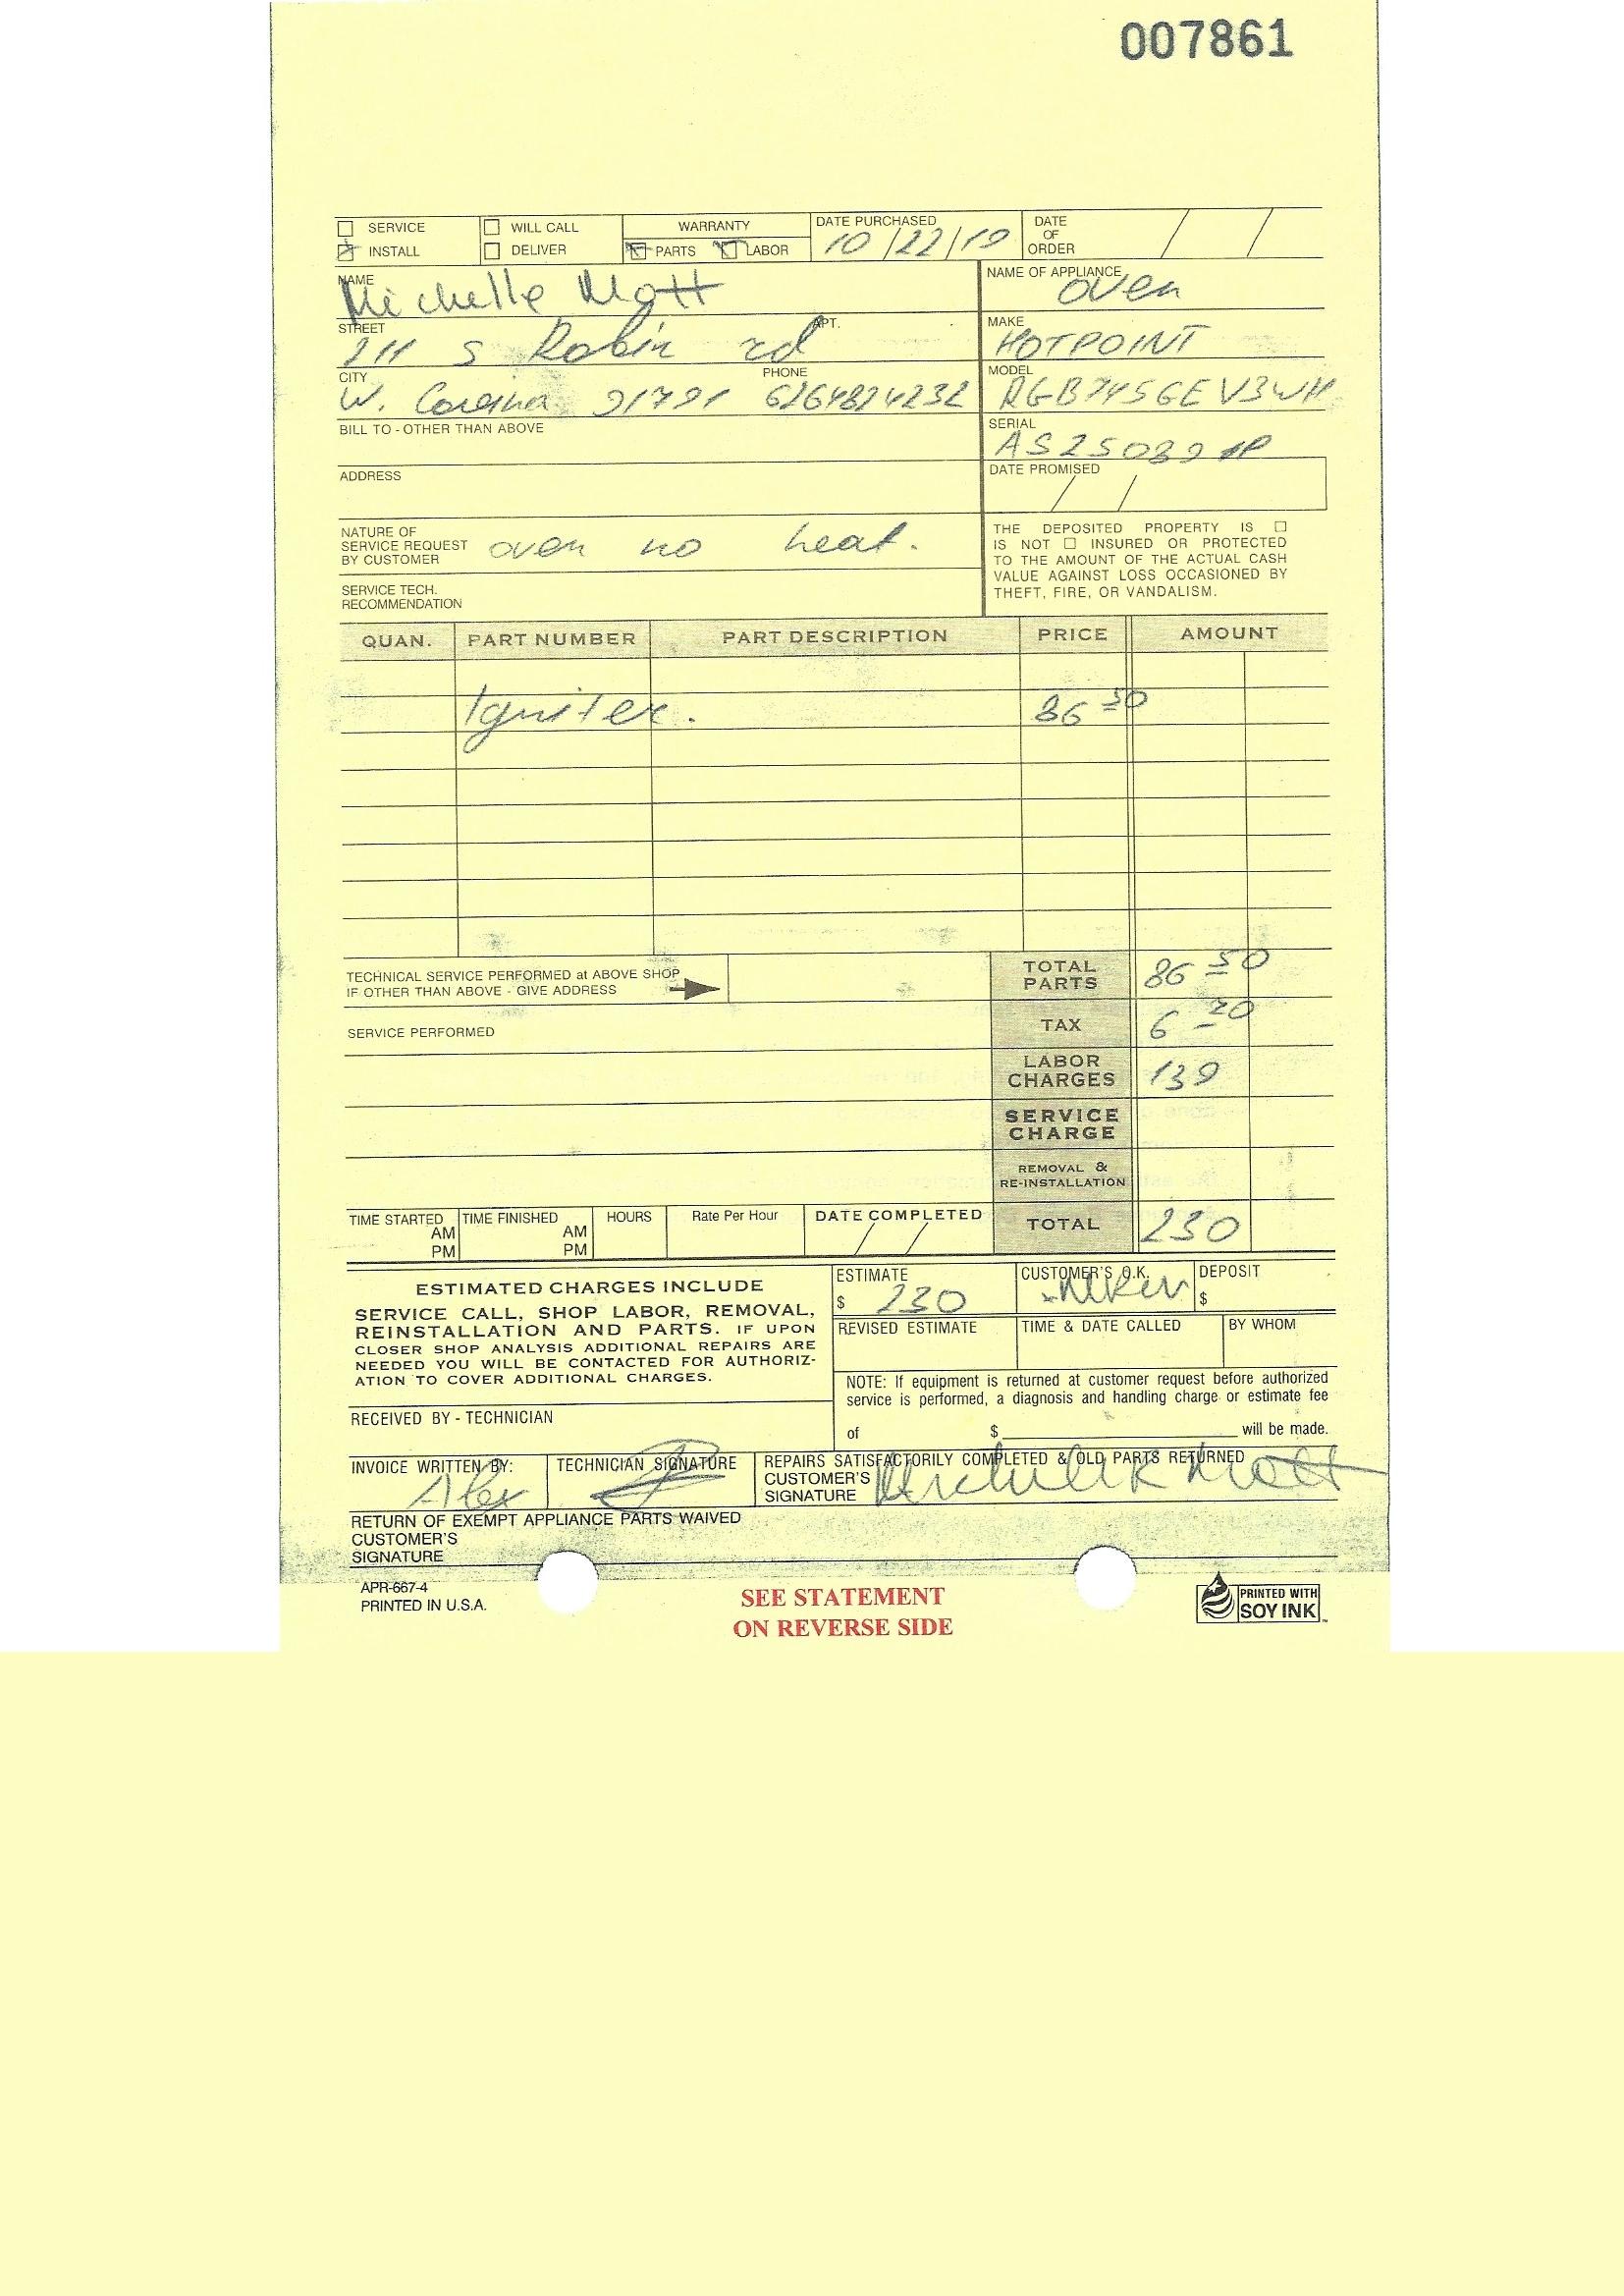 007861
SERVICE WILL CALL WARRANTY DATE PURCHASED DATE OF ORDER
INSTALL DELIVER PARTS LABOR 10/22/19 / /
NAME Michelle Mott NAME OF APPLIANCE oven
STREET 211 S Robin rd APT. MAKE HOTPOINT
CITY W. Covina 91791 PHONE 6264824232 MODEL RGB745GEV3WH
BILL TO - OTHER THAN ABOVE SERIAL
ADDRESS DATE PROMISED / /
NATURE OF
SERVICE REQUEST oven no heat.
BY CUSTOMER
SERVICE TECH.
RECOMMENDATION
THE DEPOSITED PROPERTY IS
IS NOT INSURED OR PROTECTED
TO THE AMOUNT OF THE ACTUAL CASH
VALUE AGAINST LOSS OCCASIONED BY
THEFT, FIRE, OR VANDALISM.
QUAN. PART NUMBER PART DESCRIPTION PRICE AMOUNT
Igniter. 86 50
TECHNICAL SERVICE PERFORMED at ABOVE SHOP
IF OTHER THAN ABOVE - GIVE ADDRESS
TOTAL PARTS 86 50
SERVICE PERFORMED
TAX 6 20
LABOR CHARGES 139
SERVICE CHARGE
REMOVAL &
RE-INSTALLATION
TIME STARTED AM PM TIME FINISHED AM PM HOURS Rate Per Hour DATE COMPLETED / / TOTAL 230
ESTIMATED CHARGES INCLUDE
SERVICE CALL, SHOP LABOR, REMOVAL,
REINSTALLATION AND PARTS. IF UPON
CLOSER SHOP ANALYSIS ADDITIONAL REPAIRS ARE
NEEDED YOU WILL BE CONTACTED FOR AUTHORIZ-
ATION TO COVER ADDITIONAL CHARGES.
ESTIMATE $ 230 CUSTOMER'S O.K. DEPOSIT $
REVISED ESTIMATE TIME & DATE CALLED BY WHOM
NOTE: If equipment is returned at customer request before authorized
service is performed, a diagnosis and handling charge or estimate fee
of $ will be made.
RECEIVED BY - TECHNICIAN
INVOICE WRITTEN BY: Alex TECHNICIAN SIGNATURE REPAIRS SATISFACTORILY COMPLETED & OLD PARTS RETURNED
CUSTOMER'S
SIGNATURE Michelle Mott
RETURN OF EXEMPT APPLIANCE PARTS WAIVED
CUSTOMER'S
SIGNATURE
APR-667-4
PRINTED IN U.S.A.
SEE STATEMENT
ON REVERSE SIDE
PRINTED WITH
SOY INK